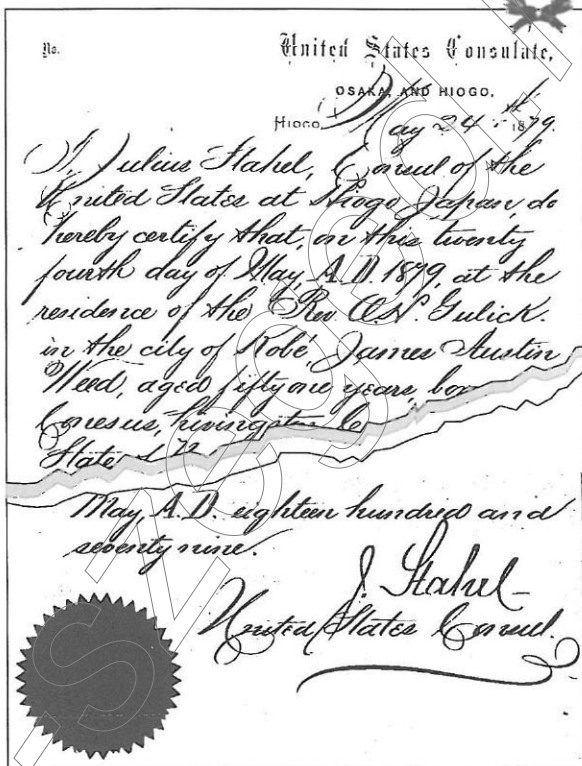 No.
United States Consulate,
OSAKA, AND HIOGO,
Hiogo, May 24th 1879.
I, Julius Stahel, Consul of the
United States at Hiogo, Japan, do
hereby certify that, on this twenty
fourth day of May, A.D. 1879, at the
residence of the Rev O.H. Gulick.
in the city of Kobé, James Austin
Weed, aged fifty one years, bor
Conesus, Livingston Co
State of N
May, A.D. eighteen hundred and
seventy nine.
J. Stahel
United States Consul.